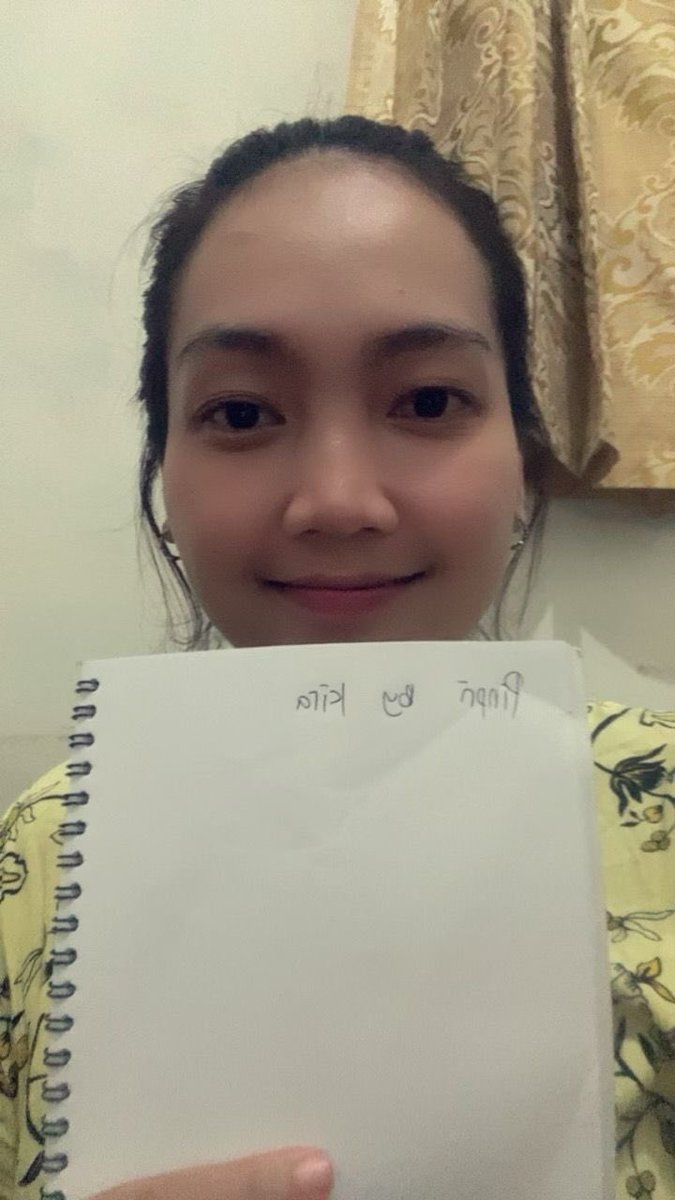 Pinpri by kira